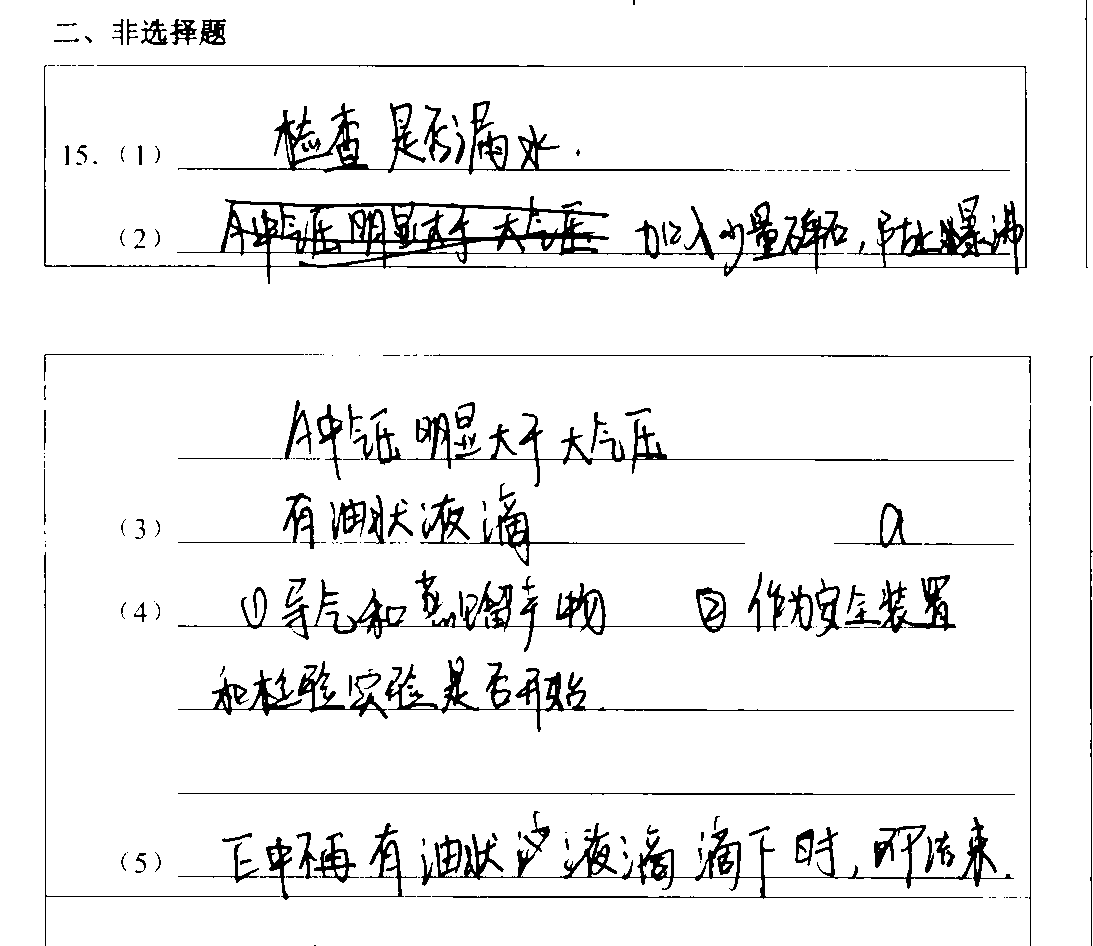 二、非选择题
15.(1) 检查是否漏水.
(2) A中气压明显大于大气压 加入少量碎石,防止爆沸
A中气压明显大于大气压
(3) 有油状液滴 a
(4) ①导气和蒸馏产物 ②作为安全装置
和检验实验是否开始.
(5) E中不再有油状 液滴滴下时,即可结束.